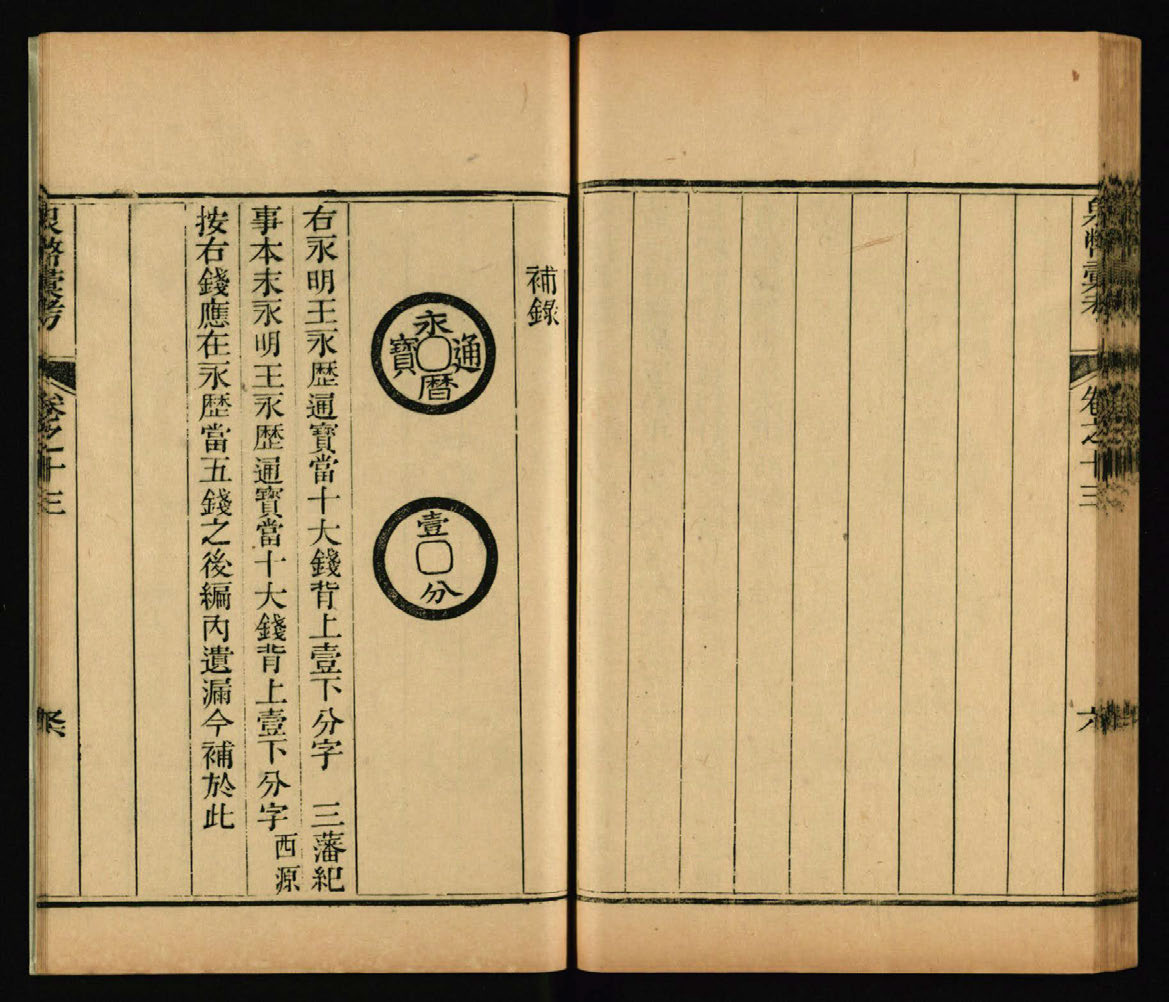 泉幣彙考
卷之十三
六
補錄
永暦通寶
壹分
右永明王永歴通寶當十大錢背上壹下分字 三藩紀
事本末永明王永歴通寶當十大錢背上壹下分字 西源
按右錢應在永歴當五錢之後編内遺漏今補於此
泉幣彙考
卷之十三